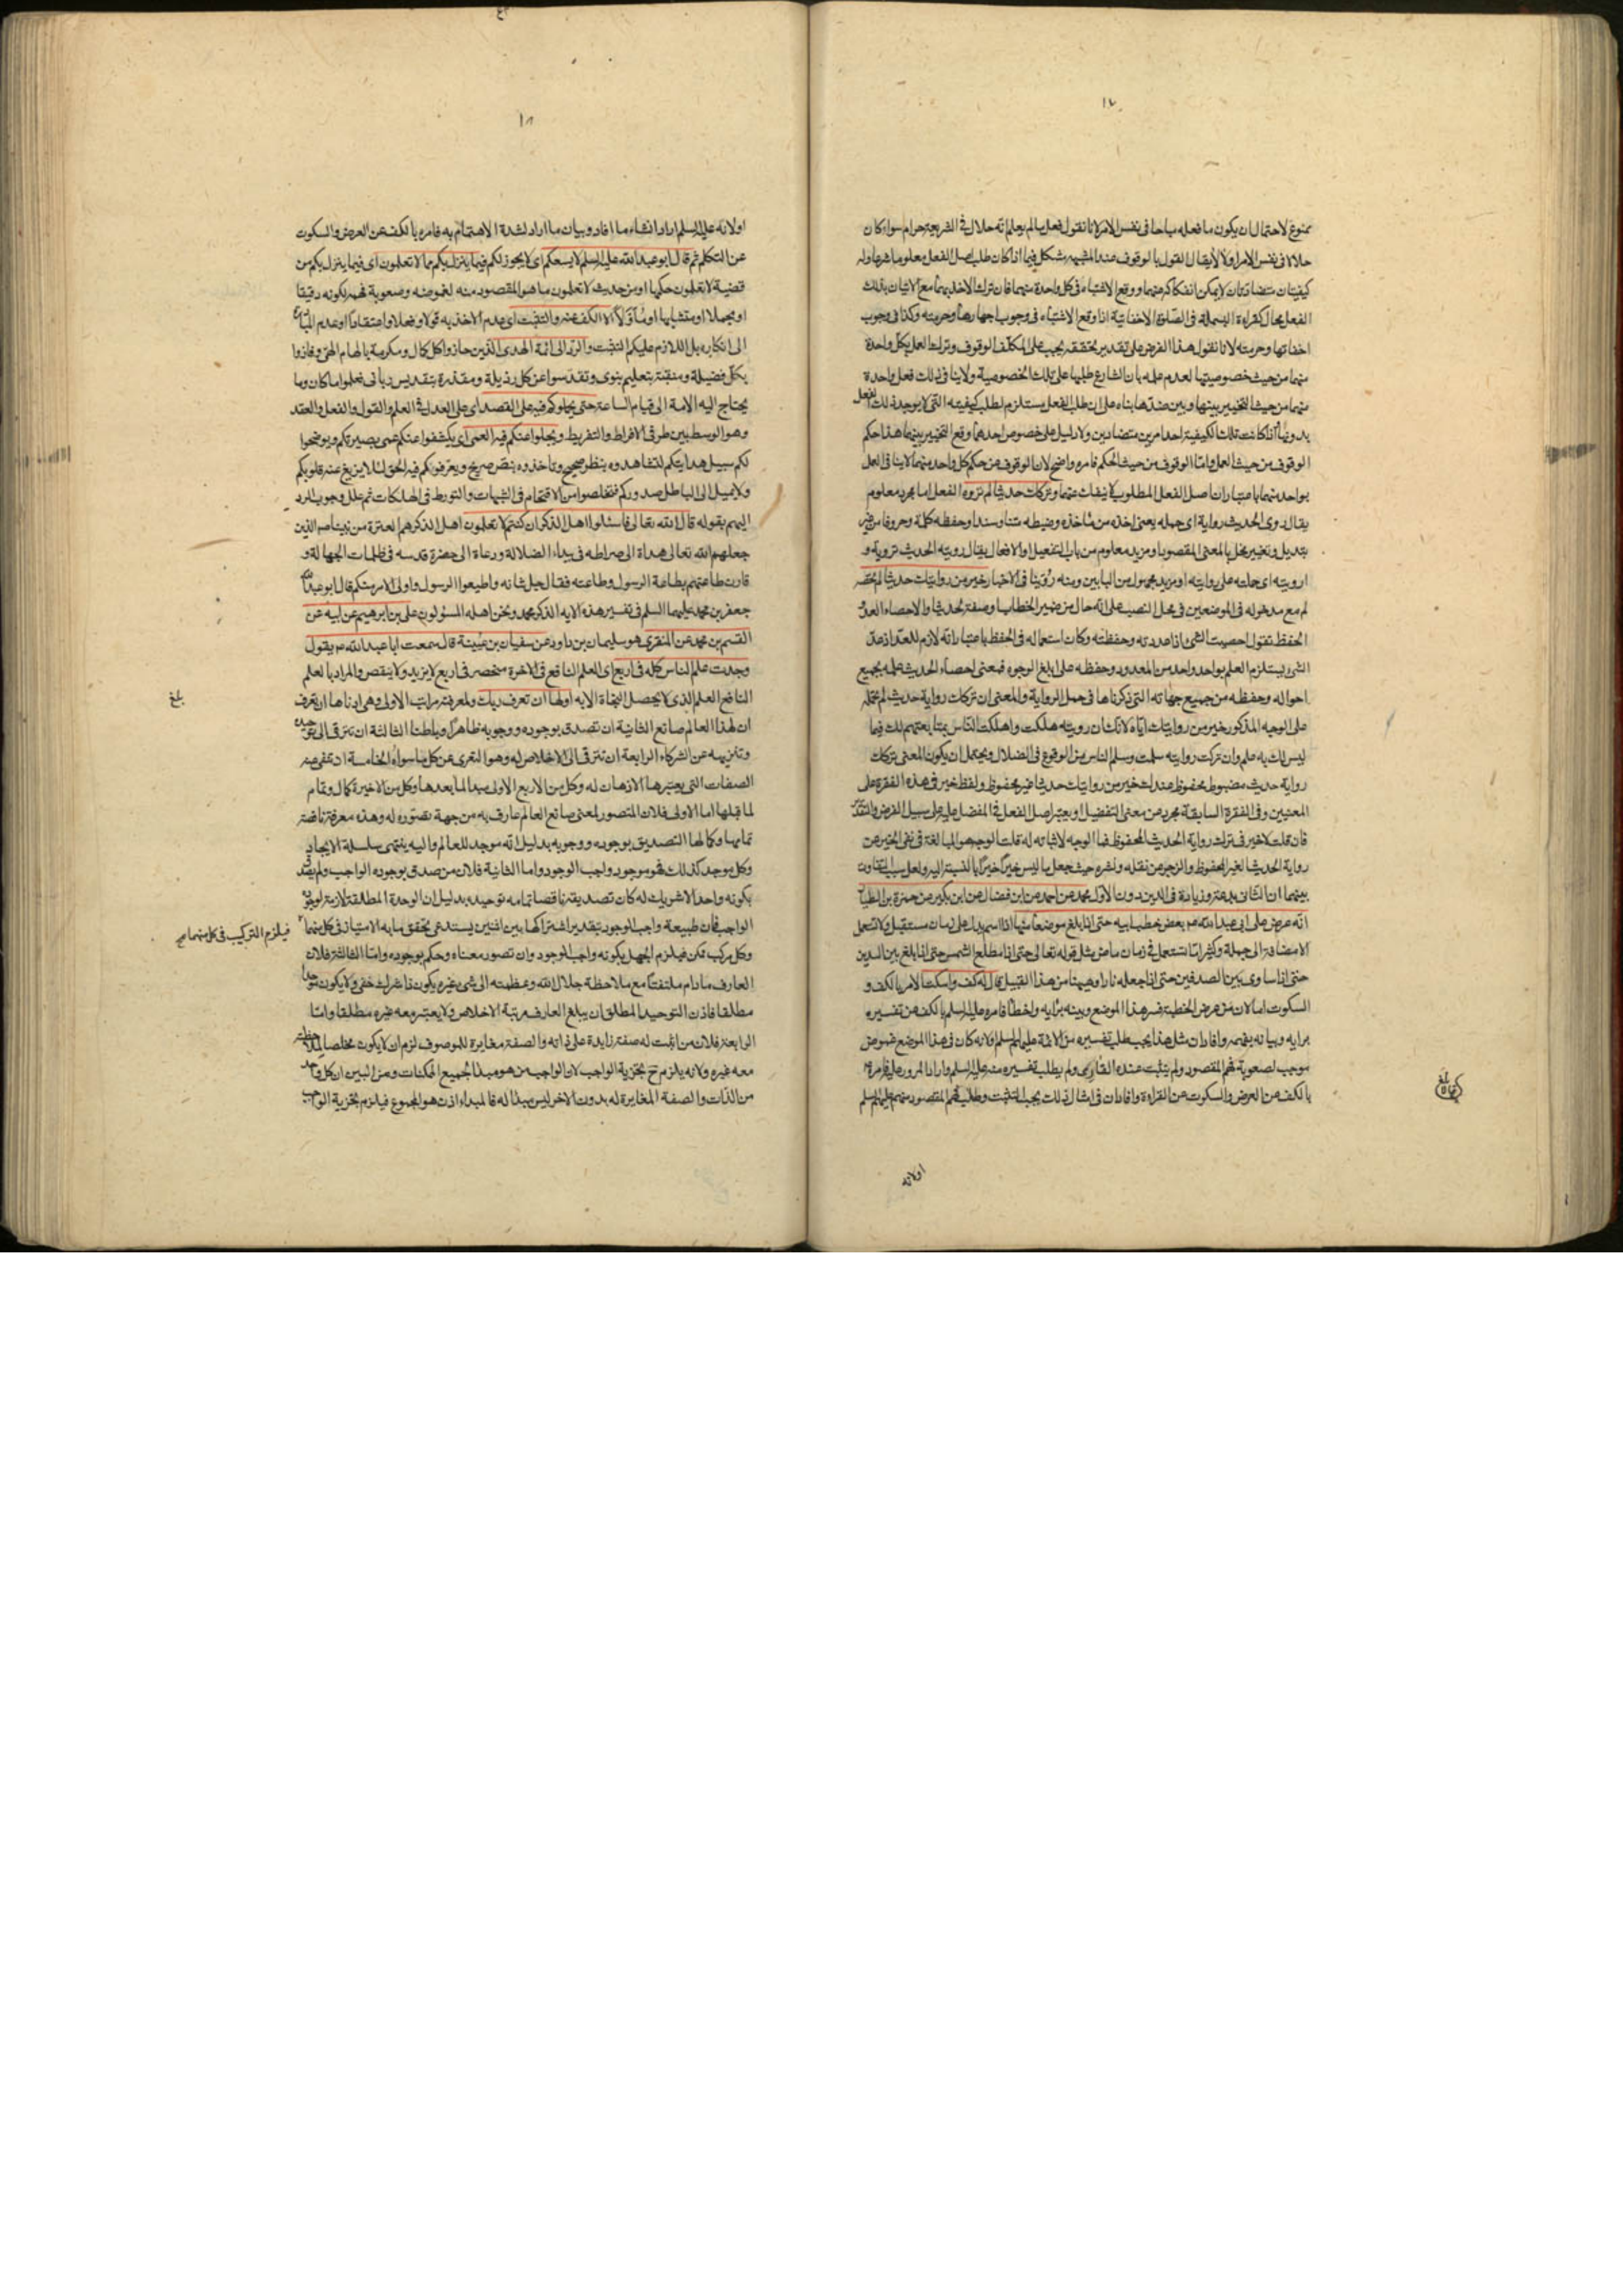 ١٧
ممنوع لاحتمال ان يكون ما فعله مباحا فى نفس الامر لانا نقول فعل ما لم يعلم انه حلال فى الشريعة حرام سواء كان
حلالا فى نفس الامر او لا لا يقال القول بالوقوف عند المشتبه يشكل فيما اذا كان طلب اصل الفعل معلوما شرعا وله
كيفيتان متضادتان لا يمكن انفكاكه عنهما ووقع الاشتباه فى كل واحدة منهما فان ترك الاخذ بهما مع الاتيان بذلك
الفعل محال كقراءة البسملة فى الصلوة الاخفاتية اذا وقع الاشتباه فى وجوب اجهارها وحرمته وكذا فى وجوب
اخفاتها وحرمته لانا نقول هذا الفرض على تقدير تحققه يجب على المكلف الوقوف وترك العمل بكل واحدة
منهما من حيث خصوصيتها لعدم علمه بان الشارع طلبها على تلك الخصوصية ولا ينافى ذلك فعل واحدة
منهما من حيث التخيير بينها وبين ضدها بناء على ان طلب الفعل يستلزم لطلب كيفيته التى لا يوجد ذلك الفعل
بدونها اذا كانت تلك الكيفية احد امرين متضادين ولا دليل على خصوص احدهما وقع التخيير بينهما هذا حكم
الوقوف من حيث العمل واما الوقوف من حيث الحكم فامره واضح لان الوقوف عن حكم كل واحد منهما لا ينافى العمل
بواحد منهما باعتبار ان اصل الفعل المطلوب لا ينفك عنهما وتركك حديثا لم تروه الفعل اما مجرد معلوم
يقال روى الحديث رواية اى حمله يعنى اخذه من مأخذه وضبطه متنا وسندا وحفظه كلمة وحروفا من غير
تبديل وتغيير مخل بالمعنى المقصود او مزيد معلوم من باب التفعيل او الافعال يقال رويته الحديث تروية و
ارويته اى حملته على روايته او مزيد مجهول من البابين ومنه روينا فى الاخبار خير من روايتك حديثا لم تحصه
لم مع مدخوله فى الموضعين فى محل النصب على انه حال من ضمير الخطاب او صفة لحديثا والاحصاء العد و
الحفظ تقول احصيت الشئ اذا عددته وحفظته وكان استعماله فى الحفظ باعتبار انه لازم للعد اذ عد
الشئ يستلزم العلم بواحد واحد من المعدود وحفظه على ابلغ الوجوه فمعنى احصاء الحديث علمه بجميع
احواله وحفظه من جميع جهاته التى ذكرناها فى حمل الرواية والمعنى ان تركك رواية حديث لم تحمله
على الوجه المذكور خير من روايتك اياه لانك ان رويته هلكت واهلكت الناس بمتابعتهم لك فيما
ليس لك به علم وان تركت روايته سلمت وسلم الناس من الوقوع فى الضلال ويحتمل ان يكون المعنى تركك
رواية حديث مضبوط محفوظ عندك خير من روايتك حديثا غير محفوظ ولفظ خير فى هذه الفقرة على
المعنيين وفى الفقرة السابقة مجرد عن معنى التفضيل او يعتبر اصل الفعل فى المفضل عليه على سبيل الفرض والتقدير
فان قلت لا خير فى ترك رواية الحديث المحفوظ فما الوجه لاثباته له قلت الوجه هو المبالغة فى نفى الخير عن
رواية الحديث الغير المحفوظ والزجر عن نقله ونشره حيث جعل ما ليس خيرا خيرا بالنسبة اليه ولعل سبب التفاوت
بينهما ان الثانى بدعة وزيادة فى الدين دون الاول محمد عن احمد عن ابن فضال عن ابن بكير عن حمزة بن الطيار
انه عرض على ابى عبد الله ع بعض خطب ابيه حتى اذا بلغ موضعا منها اذا اسم يدل على زمان مستقبل ولا تستعمل
الا مضافة الى جملة وكثيرا ما تستعمل فى زمان ماض مثل قوله تعالى حتى اذا مطلع الشمس حتى اذا بلغ بين السدين
حتى اذا ساوى بين الصدفين حتى اذا جعله نارا وههنا من هذا القبيل قال له كف واسكت الامر بالكف و
السكوت اما لان من عرض الخطبة فسر هذا الموضع وبينه برايه واخطأ فامره عليه السلم بالكف عن تفسيره
برايه وبيانه بفهمه وافاد ان مثل هذا يجب طلب تفسيره من الائمة عليهم السلم او لانه كان فى هذا الموضع غموض
موجب لصعوبة فهم المقصود ولم يتثبت عنده القارى ولم يطلب تفسيره منه عليه السلم واراد المرور عليه فامره ع
بالكف عن العرض والسكوت عن القراءة وافاد ان فى امثال ذلك يجب التثبت وطلب فهم المقصود منهم عليهم السلم
بلغ
اولانه
١٨
اولانه عليه السلم اراد انشاء ما افاد وبيان ما اراد لشدة الاهتمام به فامره بالكف عن العرض والسكوت
عن التكلم ثم قال ابو عبد الله عليه السلم لا يسعكم اى لا يجوز لكم فيما ينزل بكم مما لا تعلمون اى فيما ينزل بكم من
قضية لا تعلمون حكمها او من حديث لا تعلمون ما هو المقصود منه لغموضه وصعوبة فهمه لكونه دقيقا
او مجملا او متشابها او مأولا الا الكف عنه والتثبت اى عدم الاخذ به قولا وفعلا واعتقادا وعدم المبادرة
الى انكاره بل اللازم عليكم التثبت والرد الى ائمة الهدى الذين حازوا كل كمال ومكرمة بالهام الهى وفازوا
بكل فضيلة ومنقبة بتعليم نبوى وتقدسوا عن كل رذيلة ومقذرة بتقديس ربانى فعلموا ما كان وما
يحتاج اليه الامة الى قيام الساعة حتى يحملوكم فيه على القصد اى على العدل فى العلم والقول والفعل والعقد
وهو الوسط بين طرفى الافراط والتفريط ويجلوا عنكم فيه العمى اى يكشفوا عنكم عمى بصيرتكم ويوضحوا
لكم سبيل هدايتكم لتشاهدوه بنظر صحيح وتأخذوه بنص صريح ويعرفوكم فيه الحق لئلا يزيغ عنه قلوبكم
ولا يميل الى الباطل صدوركم فتخلصوا من الاقتحام فى الشبهات والتورط فى الهلكات ثم علل وجوب الرد
اليهم بقوله قال الله تعالى فاسئلوا اهل الذكر ان كنتم لا تعلمون اهل الذكر هم العترة من نبينا هم الذين
جعلهم الله تعالى هداة الى صراطه فى بيداء الضلالة ودعاة الى حضرة قدسه فى ظلمات الجهالة و
قارن طاعتهم بطاعة الرسول وطاعته فقال جل شانه واطيعوا الرسول واولى الامر منكم قال ابو عبد الله
جعفر بن محمد عليهما السلم فى تفسير هذه الآية الذكر محمد ونحن اهله المسؤلون على بن ابرهيم عن ابيه عن
القسم بن محمد عن المنقرى هو سليمان بن داود عن سفيان بن عيينة قال سمعت ابا عبد الله ع يقول
وجدت علم الناس كله فى اربع اى العلم النافع فى الاخرة منحصر فى اربع لا يزيد ولا ينقص والمراد بالعلم
النافع العلم الذى لا يحصل النجاة الا به اولها ان تعرف ربك ولمعرفته مراتب الاولى وهى ادناها ان تعرف
ان لهذا العالم صانع الثانية ان تصدق بوجوده ووجوبه ظاهرا وباطنا الثالثة ان تترقى الى توحيده
وتنزيهه عن الشركاء الرابعة ان تترقى الى الاخلاص له وهو التعرى عن كل ما سواه الخامسة ان تنفى عنه
الصفات التى يعتبرها الاذهان له وكل من الاربع الاولى مبدأ لما بعدها وكل من الاخيرة كمال وتمام
لما قبلها اما الاولى فلان المتصور لمعنى صانع العالم عارف به من جهة تصوره له وهذه معرفة ناقصة
تمامها وكمالها التصديق بوجوده ووجوبه بدليل انه موجد للعالم واليه ينتهى سلسلة الايجاد
وكل موجد كذلك فهو موجود واجب الوجود واما الثانية فلان من صدق بوجوده الواجب ولم يصدق
بكونه واحدا لا شريك له كان تصديقه ناقصا تمامه توحيده بدليل ان الوحدة المطلقة لازمة لوجود
الواجب فان طبيعة واجب الوجود بتقدير اشتراكها بين اثنين يستدعى تحقق ما به الامتياز فى كل منهما
فيلزم التركيب فى كل منهما صح
وكل مركب ممكن فيلزم الجهل بكونه واجب الوجود وان تصور معناه وحكم بوجوده واما الثالثة فلان
العارف ما دام ملتفتا مع ملاحظة جلال الله وعظمته الى شئ غيره يكون ذا شرك خفى ولا يكون موحدا
مطلقا فاذن التوحيد المطلق ان يبلغ العارف مرتبة الاخلاص ولا يعتبر معه غيره مطلقا واما
الرابعة فلان من اثبت له صفة زايدة على ذاته والصفة مغايرة للموصوف لزم ان لا يكون مخلصا لملاحظته
معه غيره ولانه يلزم ح تجزية الواجب لان الواجب من هو مبدأ لجميع الممكنات ومن البين ان كل واحد
من الذات والصفة المغايرة له بدون الاخر ليس مبدأ له فالمبداء اذن هو المجموع فيلزم تجزية الواجب
بلغ